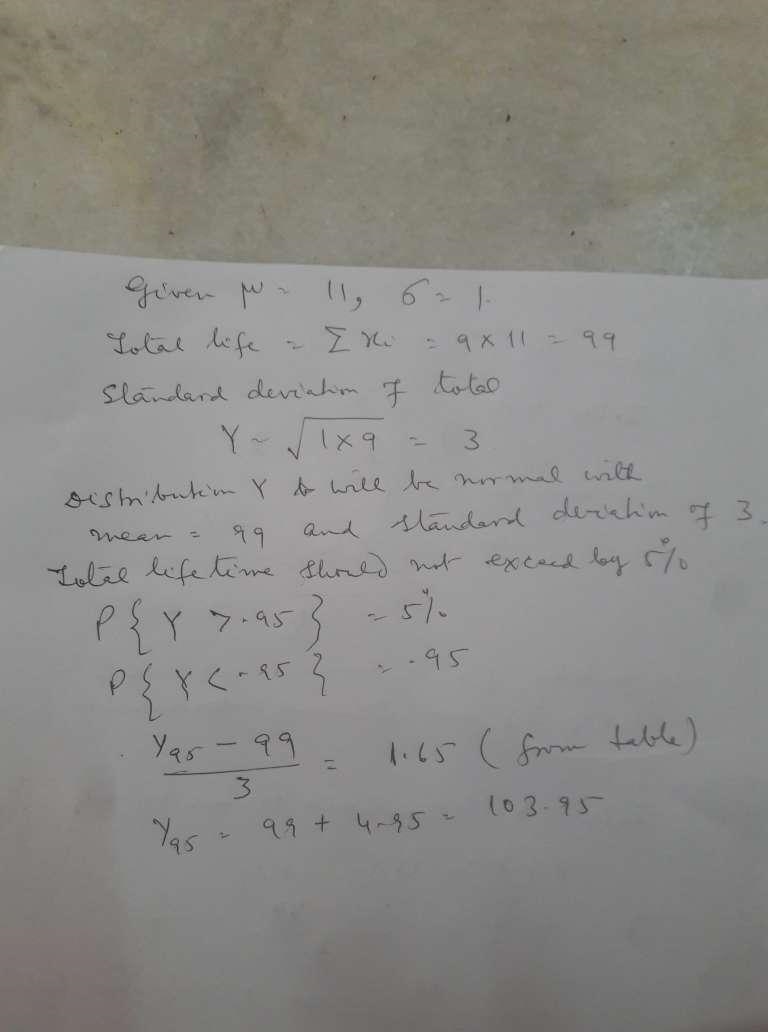 Given μ = 11, σ = 1.
Total life = Σ xi = 9 x 11 = 99
Standard deviation of total
Y ~ √1x9 = 3
Distribution Y will be normal with
mean = 99 and standard deviation of 3.
Total life time should not exceed by 5%
P{ Y > .95 } = 5%
P{ Y < .95 } = .95
Y95 - 99 / 3 = 1.65 ( from table)
Y95 = 99 + 4.95 = 103.95